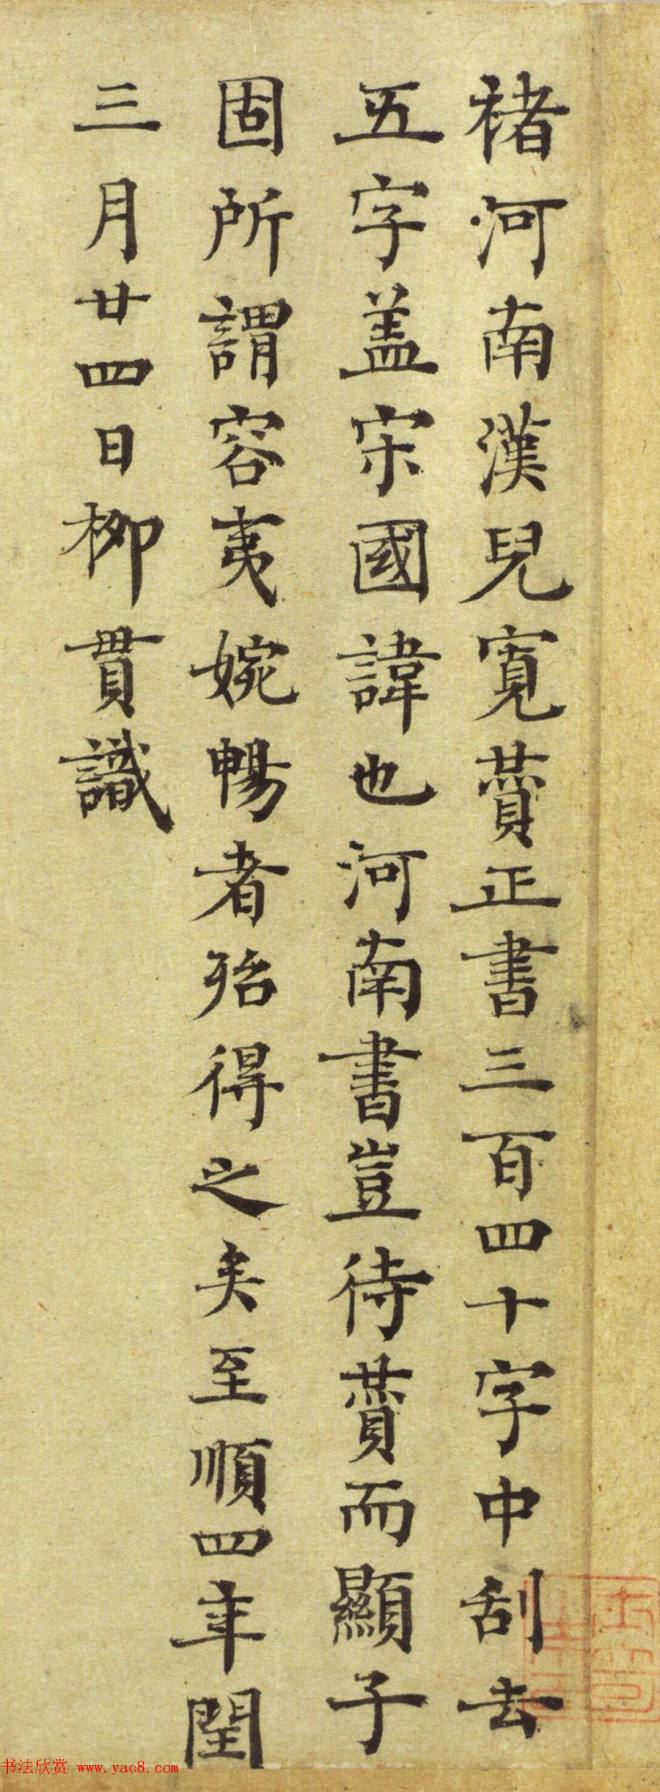 褚河南漢兒寬賛正書三百四十字中刮去
五字盖宋國諱也河南書豈待賛而顯子
固所謂容夷婉暢者殆得之矣至順四年閏
三月廿四日柳貫識
书法欣赏 www.yac8.com